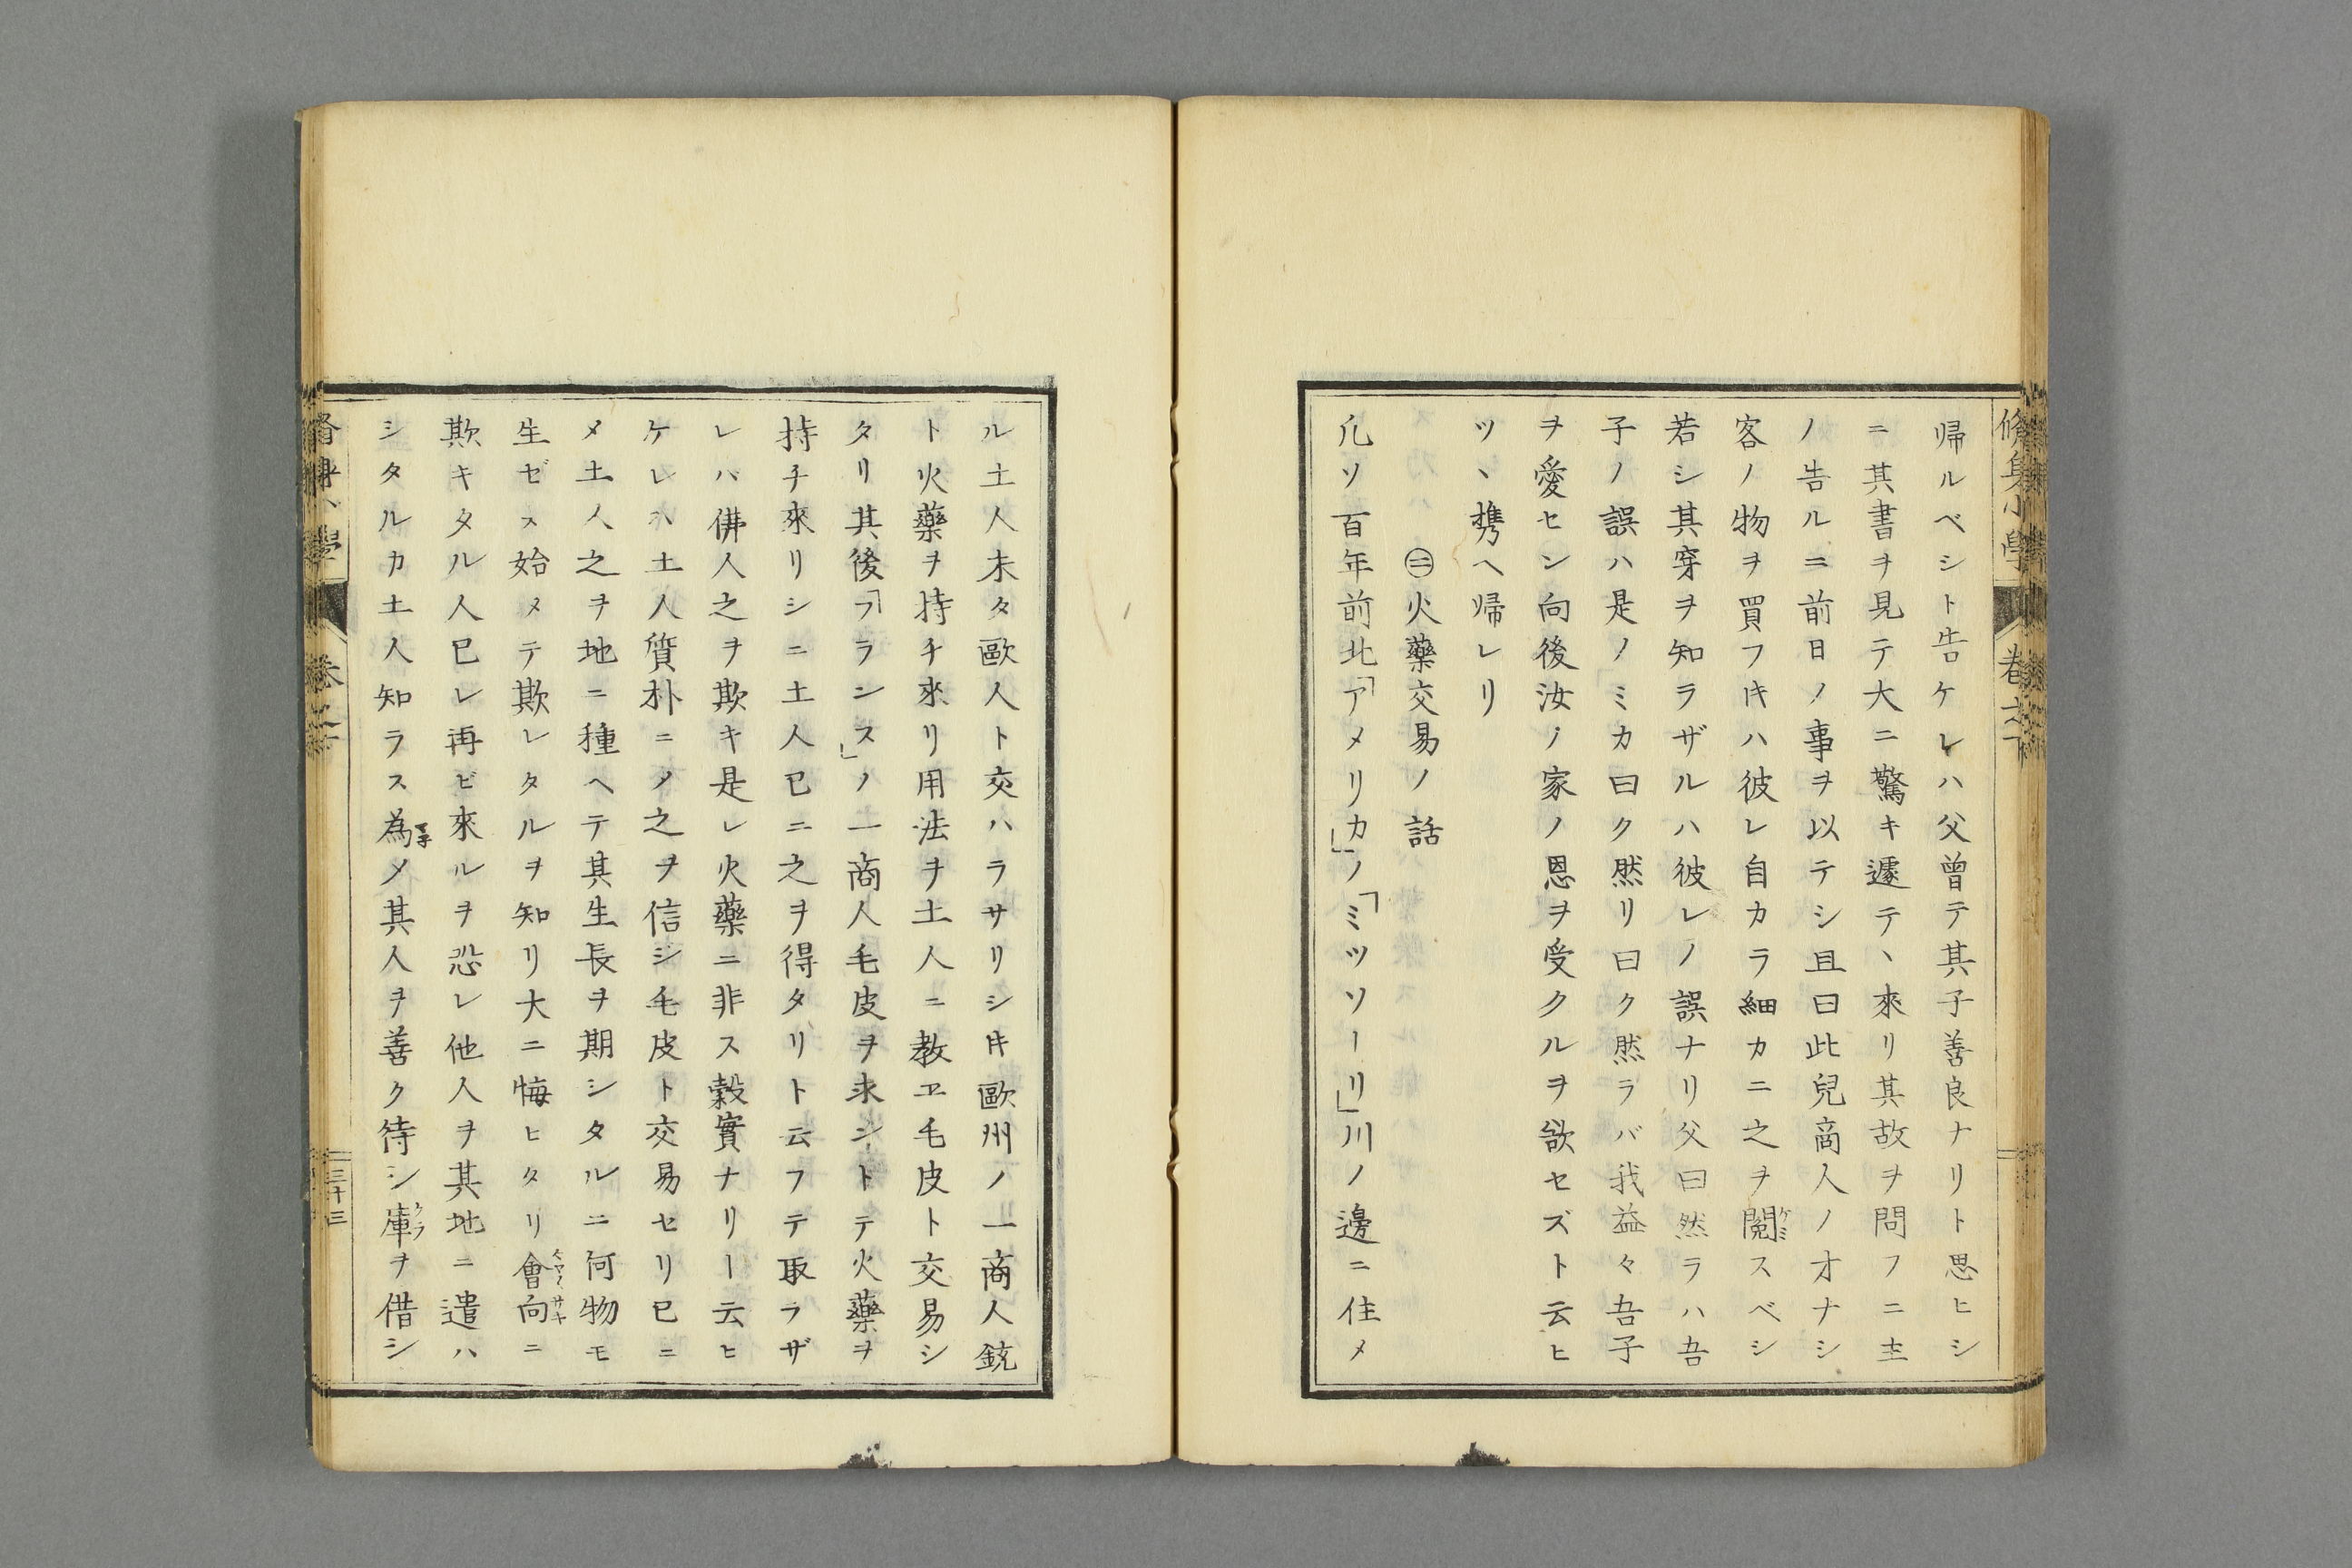 脩身小學
卷之下
帰ルベシト告ケレハ父曾テ其子善良ナリト思ヒシ
ニ其書ヲ見テ大ニ驚キ遽テヽ來リ其故ヲ問フニ主
ノ告ルニ前日ノ事ヲ以テシ且曰此兒商人ノオナシ
客ノ物ヲ買フ𪜈ハ彼レ自カラ細カニ之ヲ閲スベシ
若シ其穿ヲ知ラザルハ彼レノ誤ナリ父曰然ラハ吾
子ノ誤ハ是ノミカ曰ク然リ曰ク然ラバ我益々吾子
ヲ愛セン向後汝ノ家ノ恩ヲ受クルヲ欲セズト云ヒ
ツヽ携ヘ帰レリ
㊁火藥交易ノ話
凢ソ百年前北「アメリカ」ノ「ミツソーリ」川ノ邊ニ住メ
ル土人未タ歐人ト交ハラサリシ𪜈歐州ノ一商人銃
ト火藥ヲ持チ來リ用法ヲ土人ニ教ヱ毛皮ト交易シ
タリ其後「フランス」ノ一商人毛皮ヲ求シトテ火藥ヲ
持チ來リシニ土人已ニ之ヲ得タリト云フテ取ラザ
レバ佛人之ヲ欺キ是レ火藥ニ非ス穀實ナリ一云ヒ
ケレハ土人質朴ニノ之ヲ信ジ毛皮ト交易セリ已ニ
メ土人之ヲ地ニ種ヘテ其生長ヲ期シタルニ何物モ
生ゼス始メテ欺レタルヲ知リ大ニ悔ヒタリ會向ニ
欺キタル人已レ再ビ來ルヲ恐レ他人ヲ其地ニ遣ハ
シタルカ土人知ラス為メ其人ヲ善ク待シ庫ヲ借シ
卷之下
三十三